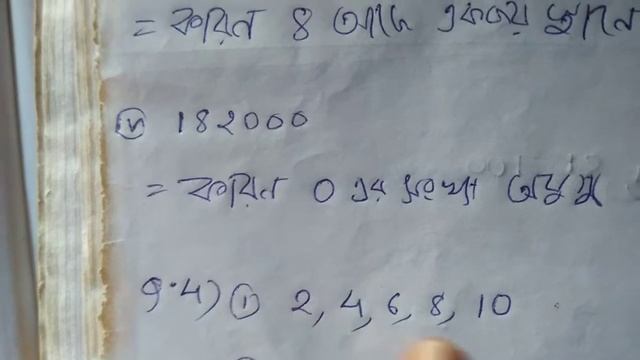 = কারণ 8 আছে একক স্থানে
iv 182000
= কারণ 0 এর সংখ্যা অযুগ্ম
9.4) i 2, 4, 6, 8, 10